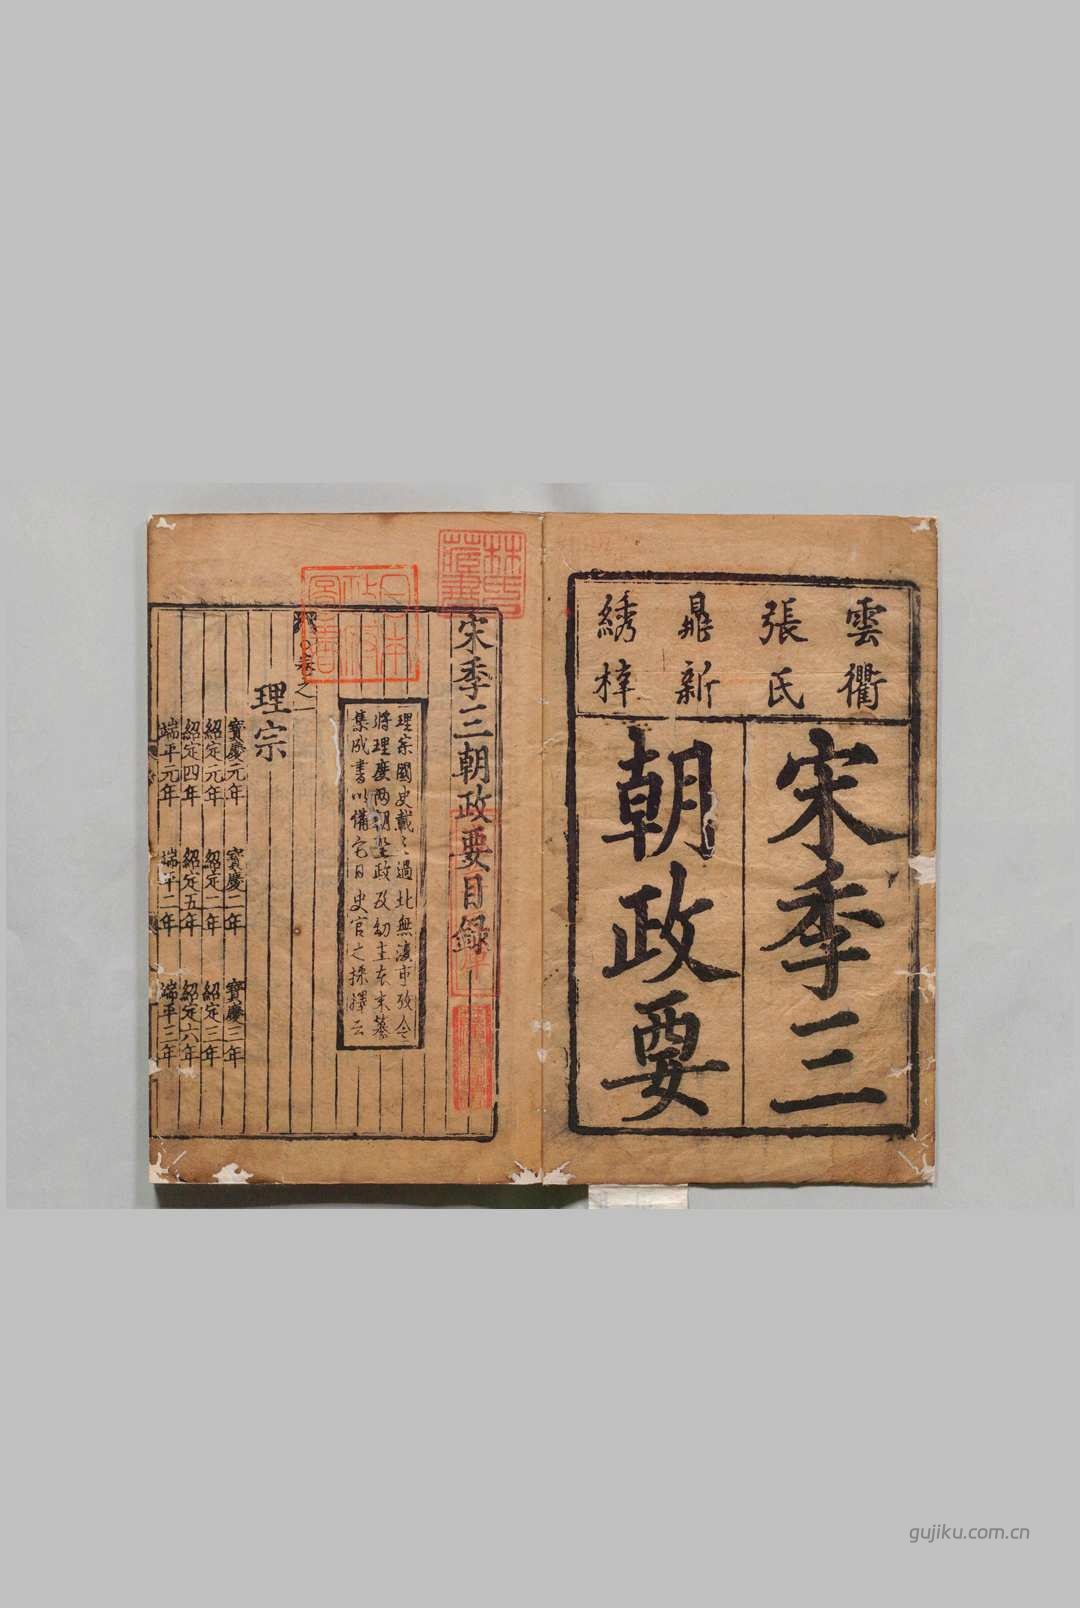 雲衢
張氏
鼎新
綉梓
宋季三
朝政要
宋季三朝政要目録
理宗國史載之過北無復可攷今
將理度两朝聖政及幼主本末纂
集成書以備它日史官之採擇云
卷之一
理宗
寳慶元年 寳慶二年 寳慶三年
紹定元年 紹定二年 紹定三年
紹定四年 紹定五年 紹定六年
端平元年 端平二年 端平三年
林氏
藏書
日本
政府
圖書
gujiku.com.cn